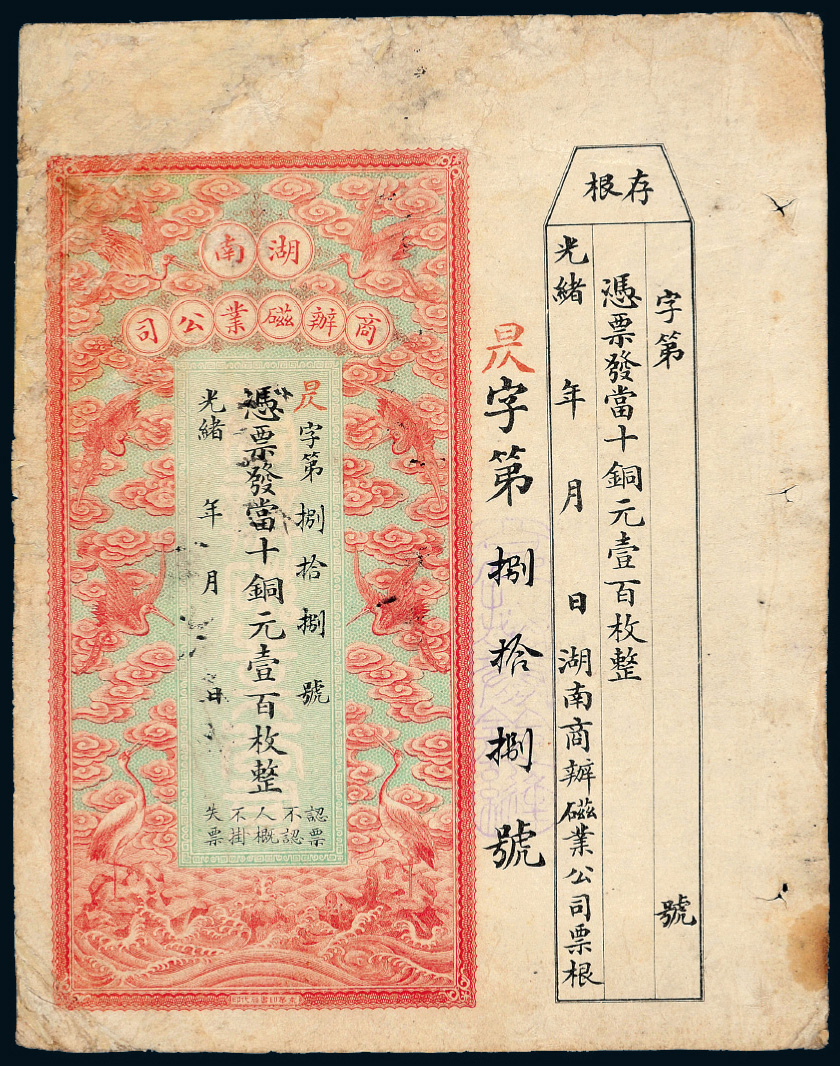 存根
字第 號
憑票發當十銅元壹百枚整
光緒 年 月 日湖南商辦磁業公司票根
字第捌拾捌號
湖南
商辦磁業公司
字第捌拾捌號
憑票發當十銅元壹百枚整
光緒 年 月 日
認票
不認
人概
不掛
失票